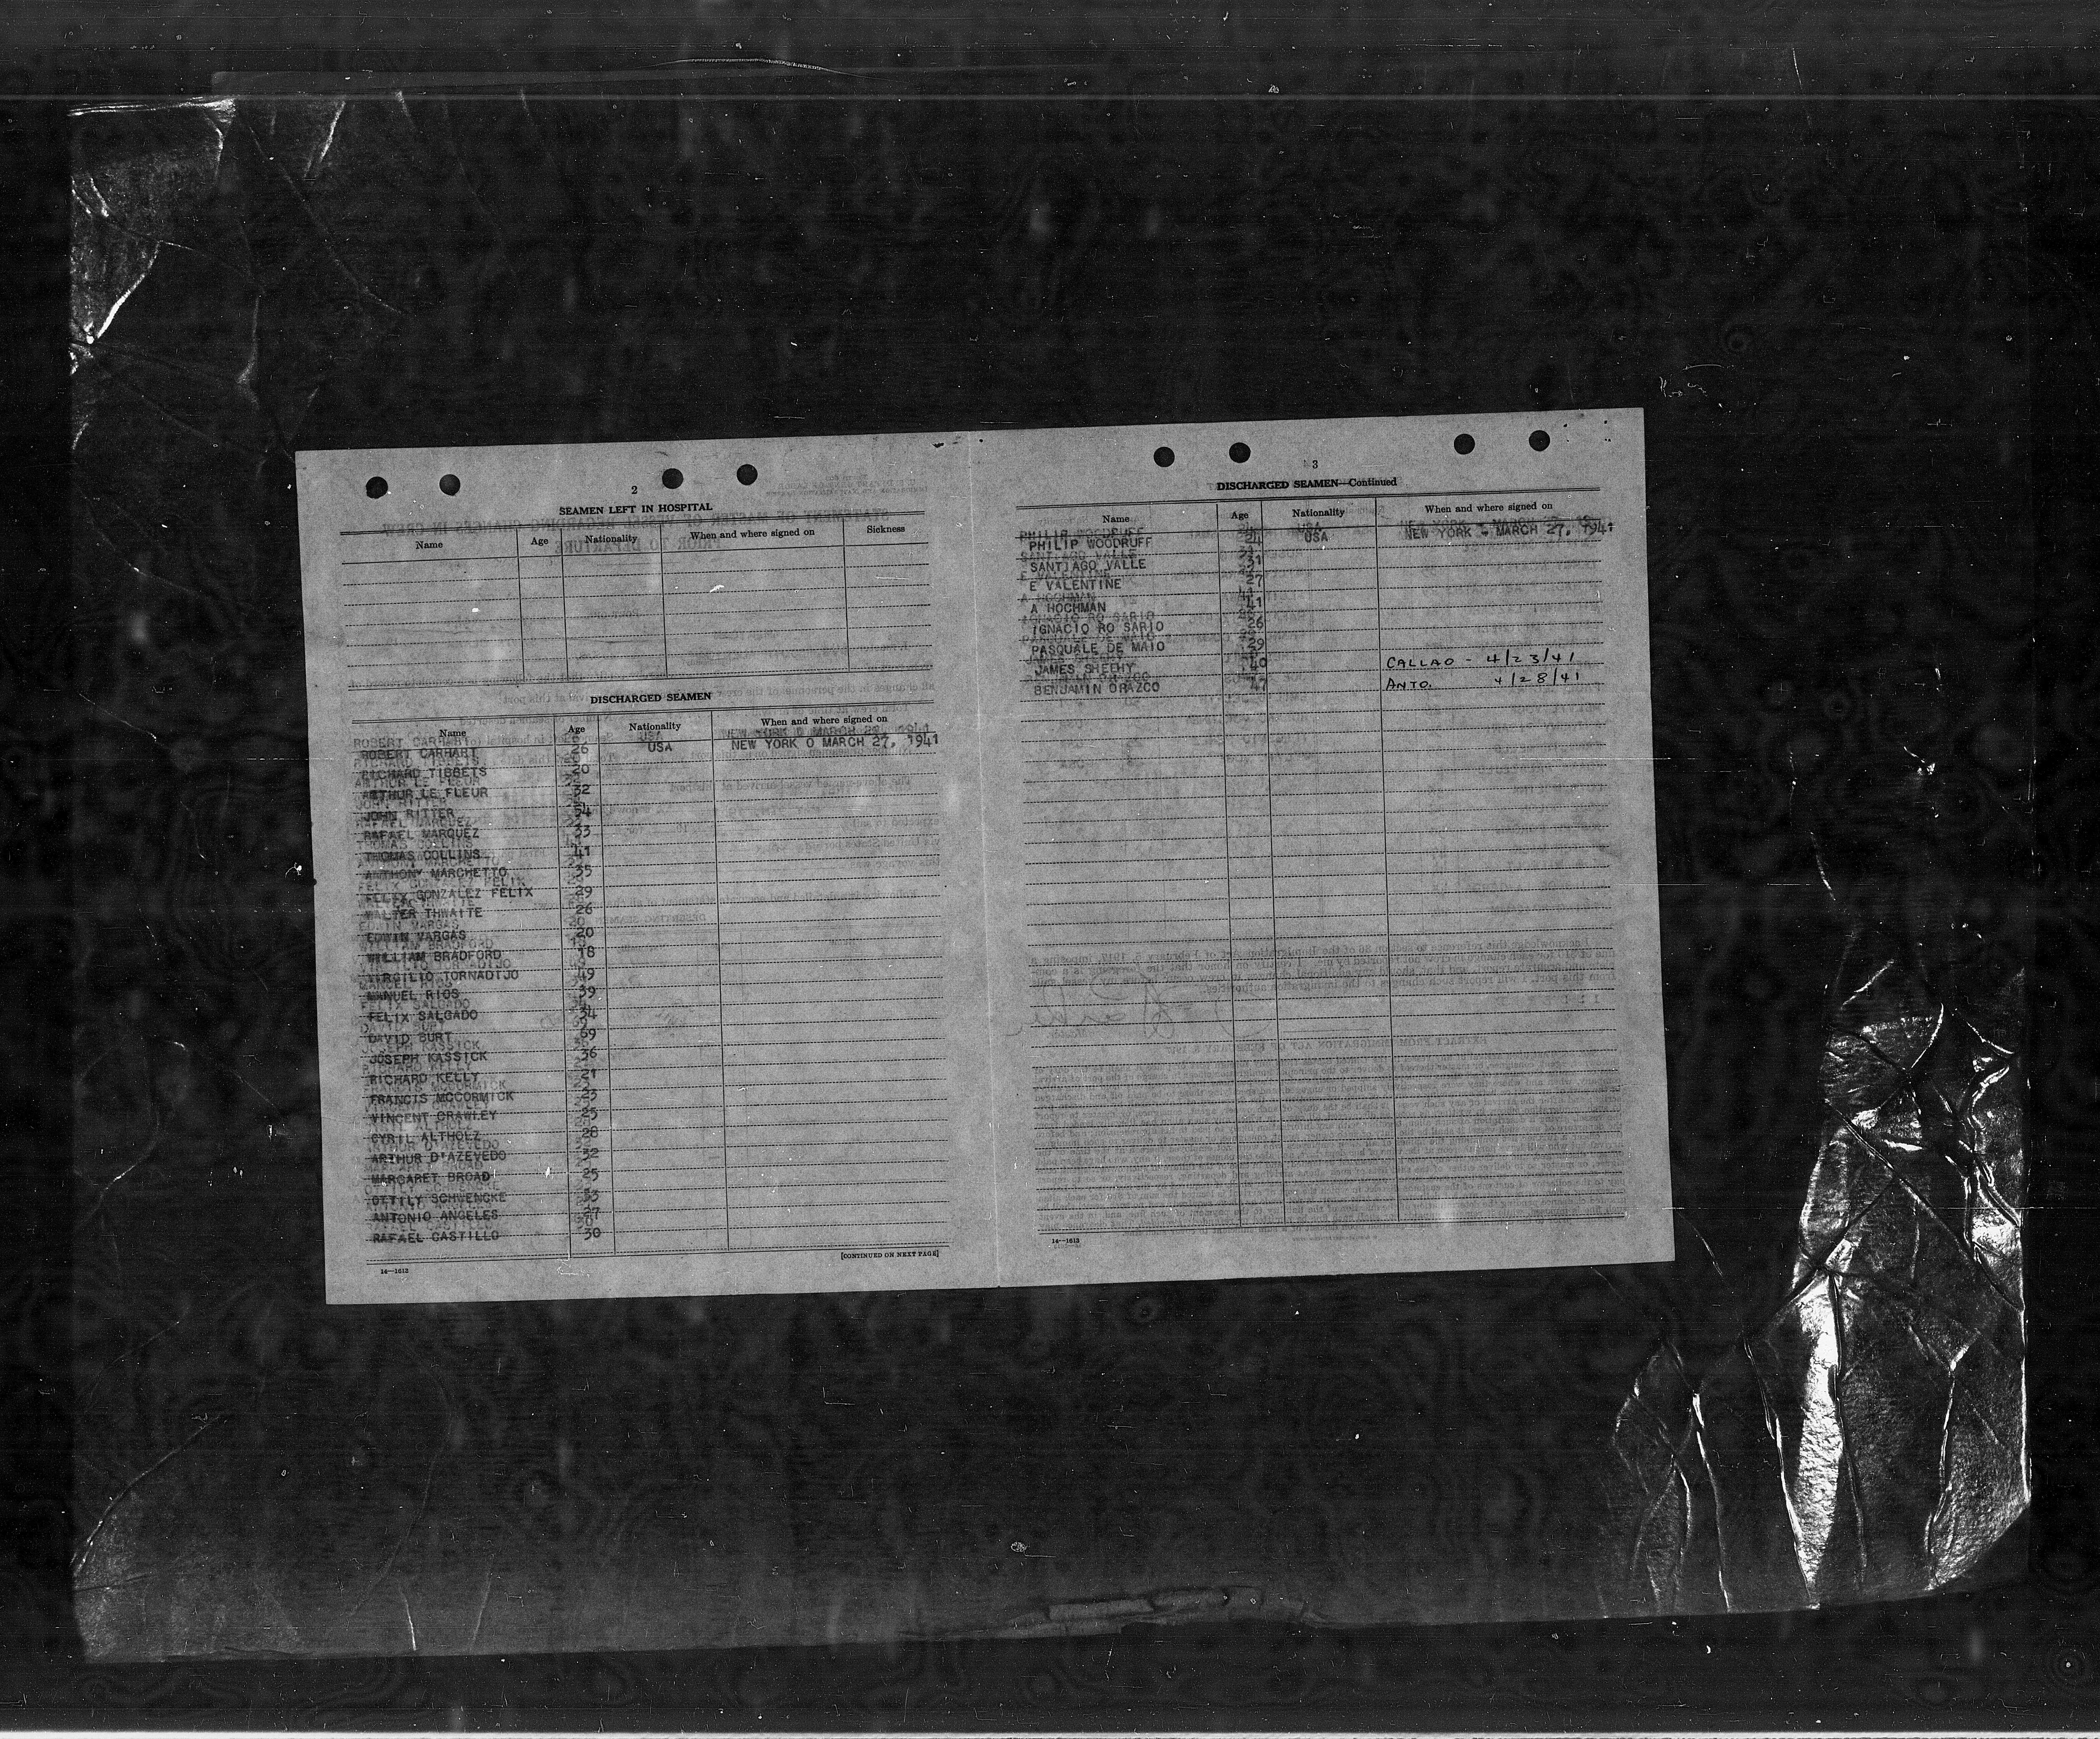 2
SEAMEN LEFT IN HOSPITAL
Name Age Nationality When and where signed on Sickness
DISCHARGED SEAMEN
Name Age Nationality When and where signed on
ROBERT CARHART 26 USA NEW YORK O MARCH 27, 1941
RICHARD TIBBETS 20
ARTHUR LE FLEUR 32
JOHN RITTER 54
RAFAEL MARQUEZ 33
THOMAS COLLINS 41
ANTHONY MARCHETTO 35
FELIX GONZALEZ FELIX 29
WALTER THWAITE 26
EDWIN VARGAS 20
WILLIAM BRADFORD 18
VIRGILIO TORNADIJO 49
MANUEL RIOS 39
FELIX SALGADO 34
DAVID BURT 69
JOSEPH KASSICK 36
RICHARD KELLY 21
FRANCIS MCCORMICK 23
VINCENT CRAWLEY 25
CYRIL ALTHOLZ 28
ARTHUR D'AZEVEDO 32
MARGARET BROAD 25
OTTILY SCHWENCKE 33
ANTONIO ANGELES 27
RAFAEL CASTILLO 30
[CONTINUED ON NEXT PAGE]
14—1613
3
DISCHARGED SEAMEN—Continued
Name Age Nationality When and where signed on
PHILIP WOODRUFF 24 USA NEW YORK - MARCH 27, 1941
SANTIAGO VALLE 31
E VALENTINE 27
A HOCHMAN 41
IGNACIO RO SARIO 26
PASQUALE DE MAIO 29
JAMES SHEEHY 40 CALLAO - 4/23/41
BENJAMIN ORAZCO 47 ANTO. 4/28/41
14—1613